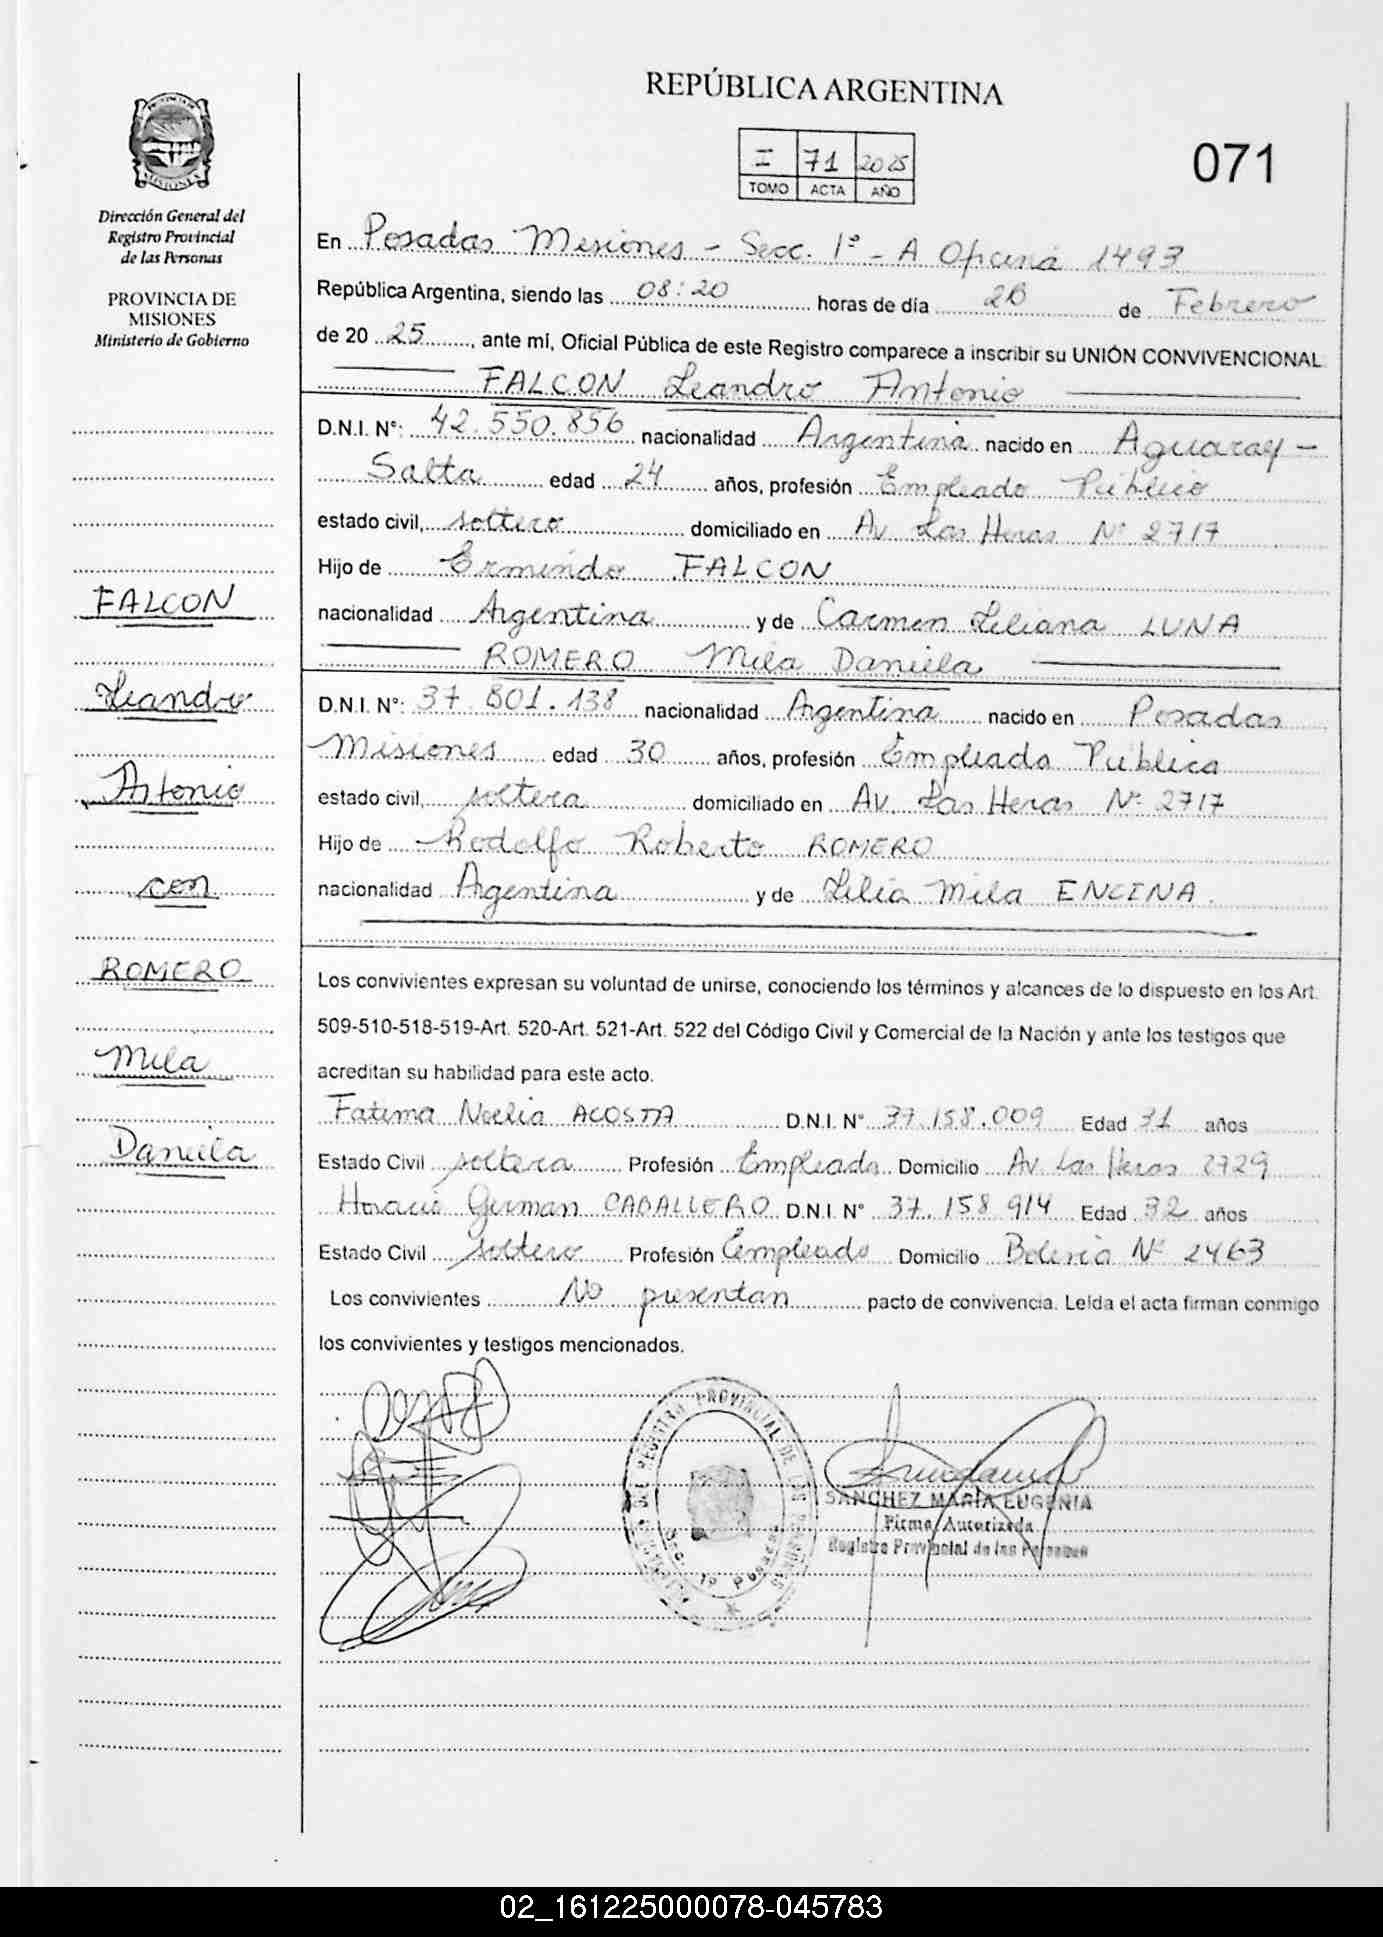 REPÚBLICA ARGENTINA
I 71 2025
TOMO ACTA AÑO
071
Dirección General del
Registro Provincial
de las Personas
PROVINCIA DE
MISIONES
Ministerio de Gobierno
En Posadas Misiones - Secc. 1º - A Oficina 1493
República Argentina, siendo las 08:20 horas de día 28 de Febrero
de 20 25, ante mí, Oficial Pública de este Registro comparece a inscribir su UNIÓN CONVIVENCIONAL
FALCON Leandro Antonio
D.N.I. Nº: 42.550.856 nacionalidad Argentina nacido en Aguaray -
Salta edad 24 años, profesión Empleado Público
estado civil, soltero domiciliado en Av. Las Heras Nº 2717
Hijo de Ermindo FALCON
nacionalidad Argentina y de Carmen Liliana LUNA
ROMERO Mila Daniela
D.N.I. Nº: 37.801.138 nacionalidad Argentina nacido en Posadas
Misiones edad 30 años, profesión Empleada Publica
estado civil, soltera domiciliado en Av. Las Heras Nº 2717
Hijo de Rodolfo Roberto ROMERO
nacionalidad Argentina y de Lilia Mila ENCINA.
FALCON
Leandro
Antonio
con
ROMERO
Mila
Daniela
Los convivientes expresan su voluntad de unirse, conociendo los términos y alcances de lo dispuesto en los Art.
509-510-518-519-Art. 520-Art. 521-Art. 522 del Código Civil y Comercial de la Nación y ante los testigos que
acreditan su habilidad para este acto.
Fatima Noelia ACOSTA D.N.I. Nº 37.158.009 Edad 31 años
Estado Civil soltera Profesión Empleada Domicilio Av. Las Heras 2729
Horacio German CABALLERO D.N.I. Nº 37.158.914 Edad 32 años
Estado Civil soltero Profesión Empleado Domicilio Nº 2463
Los convivientes No presentan pacto de convivencia. Leída el acta firman conmigo
los convivientes y testigos mencionados.
SANCHEZ MARÍA EUGENIA
Firma Autorizada
Registro Provincial de las Personas
02_161225000078-045783